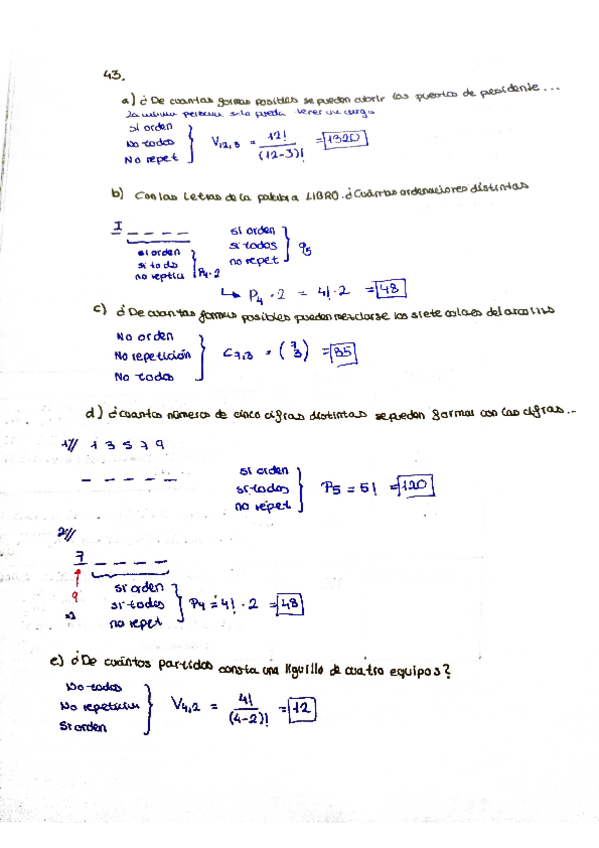 43.
a) ¿De cuantas formas posibles se pueden cubrir los puestos de presidente...
la misma persona solo pueda tener un cargo
Si orden
No todos
No repet
V12,3 = 12! / (12-3)! = 1320
b) Con las letras de la palabra LIBRO. ¿Cuántas ordenaciones distintas
I _ _ _ _
si orden
si todos
no repet
si orden
si todo
no P4·2
↳ P4 · 2 = 4! · 2 = 48
c) ¿De cuantas formas posibles pueden mezclarse los siete colores del arco iris
No orden
No repetición
No todos
C7,3 = (7 3) = 35
d) ¿Cuantos números de cinco cifras distintas se pueden formar con las cifras...
1// 1 3 5 7 9
_ _ _ _ _
si orden
si todos
no repet
P5 = 5! = 120
2//
7 _ _ _ _
9
si orden
si todos
no repet
P4 = 4! · 2 = 48
e) ¿De cuántos partidos consta una liguilla de cuatro equipos?
No todos
No repeticion
Si orden
V4,2 = 4! / (4-2)! = 12